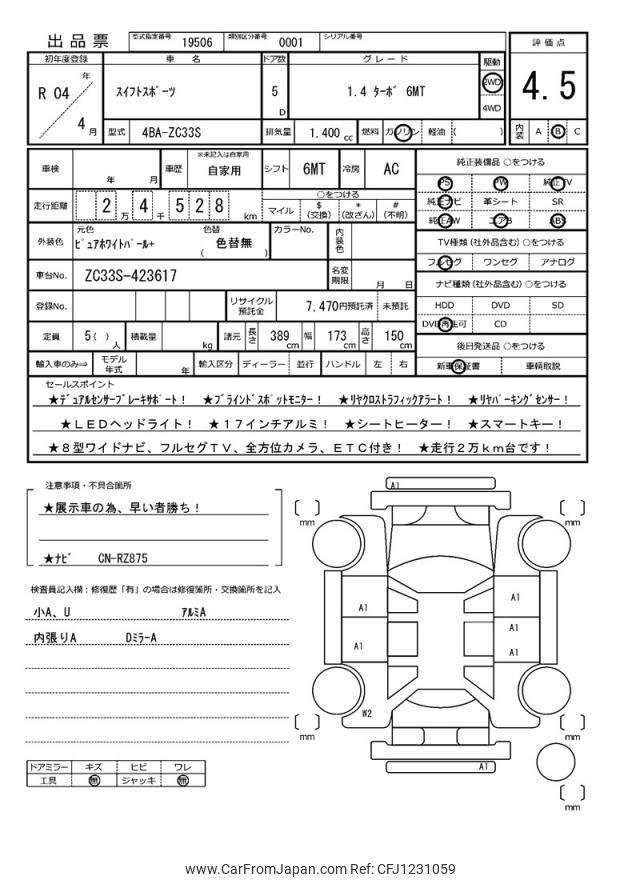 出品票 型式指定番号 19506 類別区分番号 0001 シリアル番号
評価点
4.5
内装 A B C
初年度登録 車名 ドア数 グレード 駆動
R 04 年 4 月
スイフトスポーツ 5 D 1.4 ターボ 6MT 2WD 4WD
型式 4BA-ZC33S 排気量 1.400 cc 燃料 ガソリン 軽油 ( )
車検 年 月 車歴 ※未記入は自家用 自家用 シフト 6MT 冷房 AC
走行距離 2 万 4 千 5 2 8 km
○をつける
マイル $(交換) *(改ざん) #(不明)
外装色 元色 ピュアホワイトパール+ 色替 ( 色替無 ) カラーNo. 内装色
車台No. ZC33S-423617 名変期限 月 日
登録No. リサイクル預託金 7,470円預託済 未預託
定員 5( ) 人 積載量 kg 諸元 長さ 389 cm 幅 173 cm 高さ 150 cm
輸入車のみ⇒ モデル年式 年 輸入区分 ディーラー 並行 ハンドル 左 右
純正装備品 ○をつける
PS PW 純正TV
純正ナビ 革シート SR
純正AW エアB ABS
TV種類 (社外品含む) ○をつける
フルセグ ワンセグ アナログ
ナビ種類 (社外品含む) ○をつける
HDD DVD SD
DVD再生可 CD
後日発送品 ○をつける
新車保証書 車輌取説
セールスポイント
★デュアルセンサーブレーキサポート! ★ブラインドスポットモニター! ★リヤクロストラフィックアラート! ★リヤパーキングセンサー!
★LEDヘッドライト! ★17インチアルミ! ★シートヒーター! ★スマートキー!
★8型ワイドナビ、フルセグTV、全方位カメラ、ETC付き! ★走行2万km台です!
注意事項・不具合箇所
★展示車の為、早い者勝ち!
★ナビ CN-RZ875
検査員記入欄:修復歴「有」の場合は修復箇所・交換箇所を記入
小A、U アルミA
内張りA DミラーA
ドアミラー キズ ヒビ ワレ
工具 無 ジャッキ 無
A1
mm mm
A1 A1
A1
A1 A1
W2
mm mm
A1
mm
www.CarFromJapan.com Ref: CFJ1231059